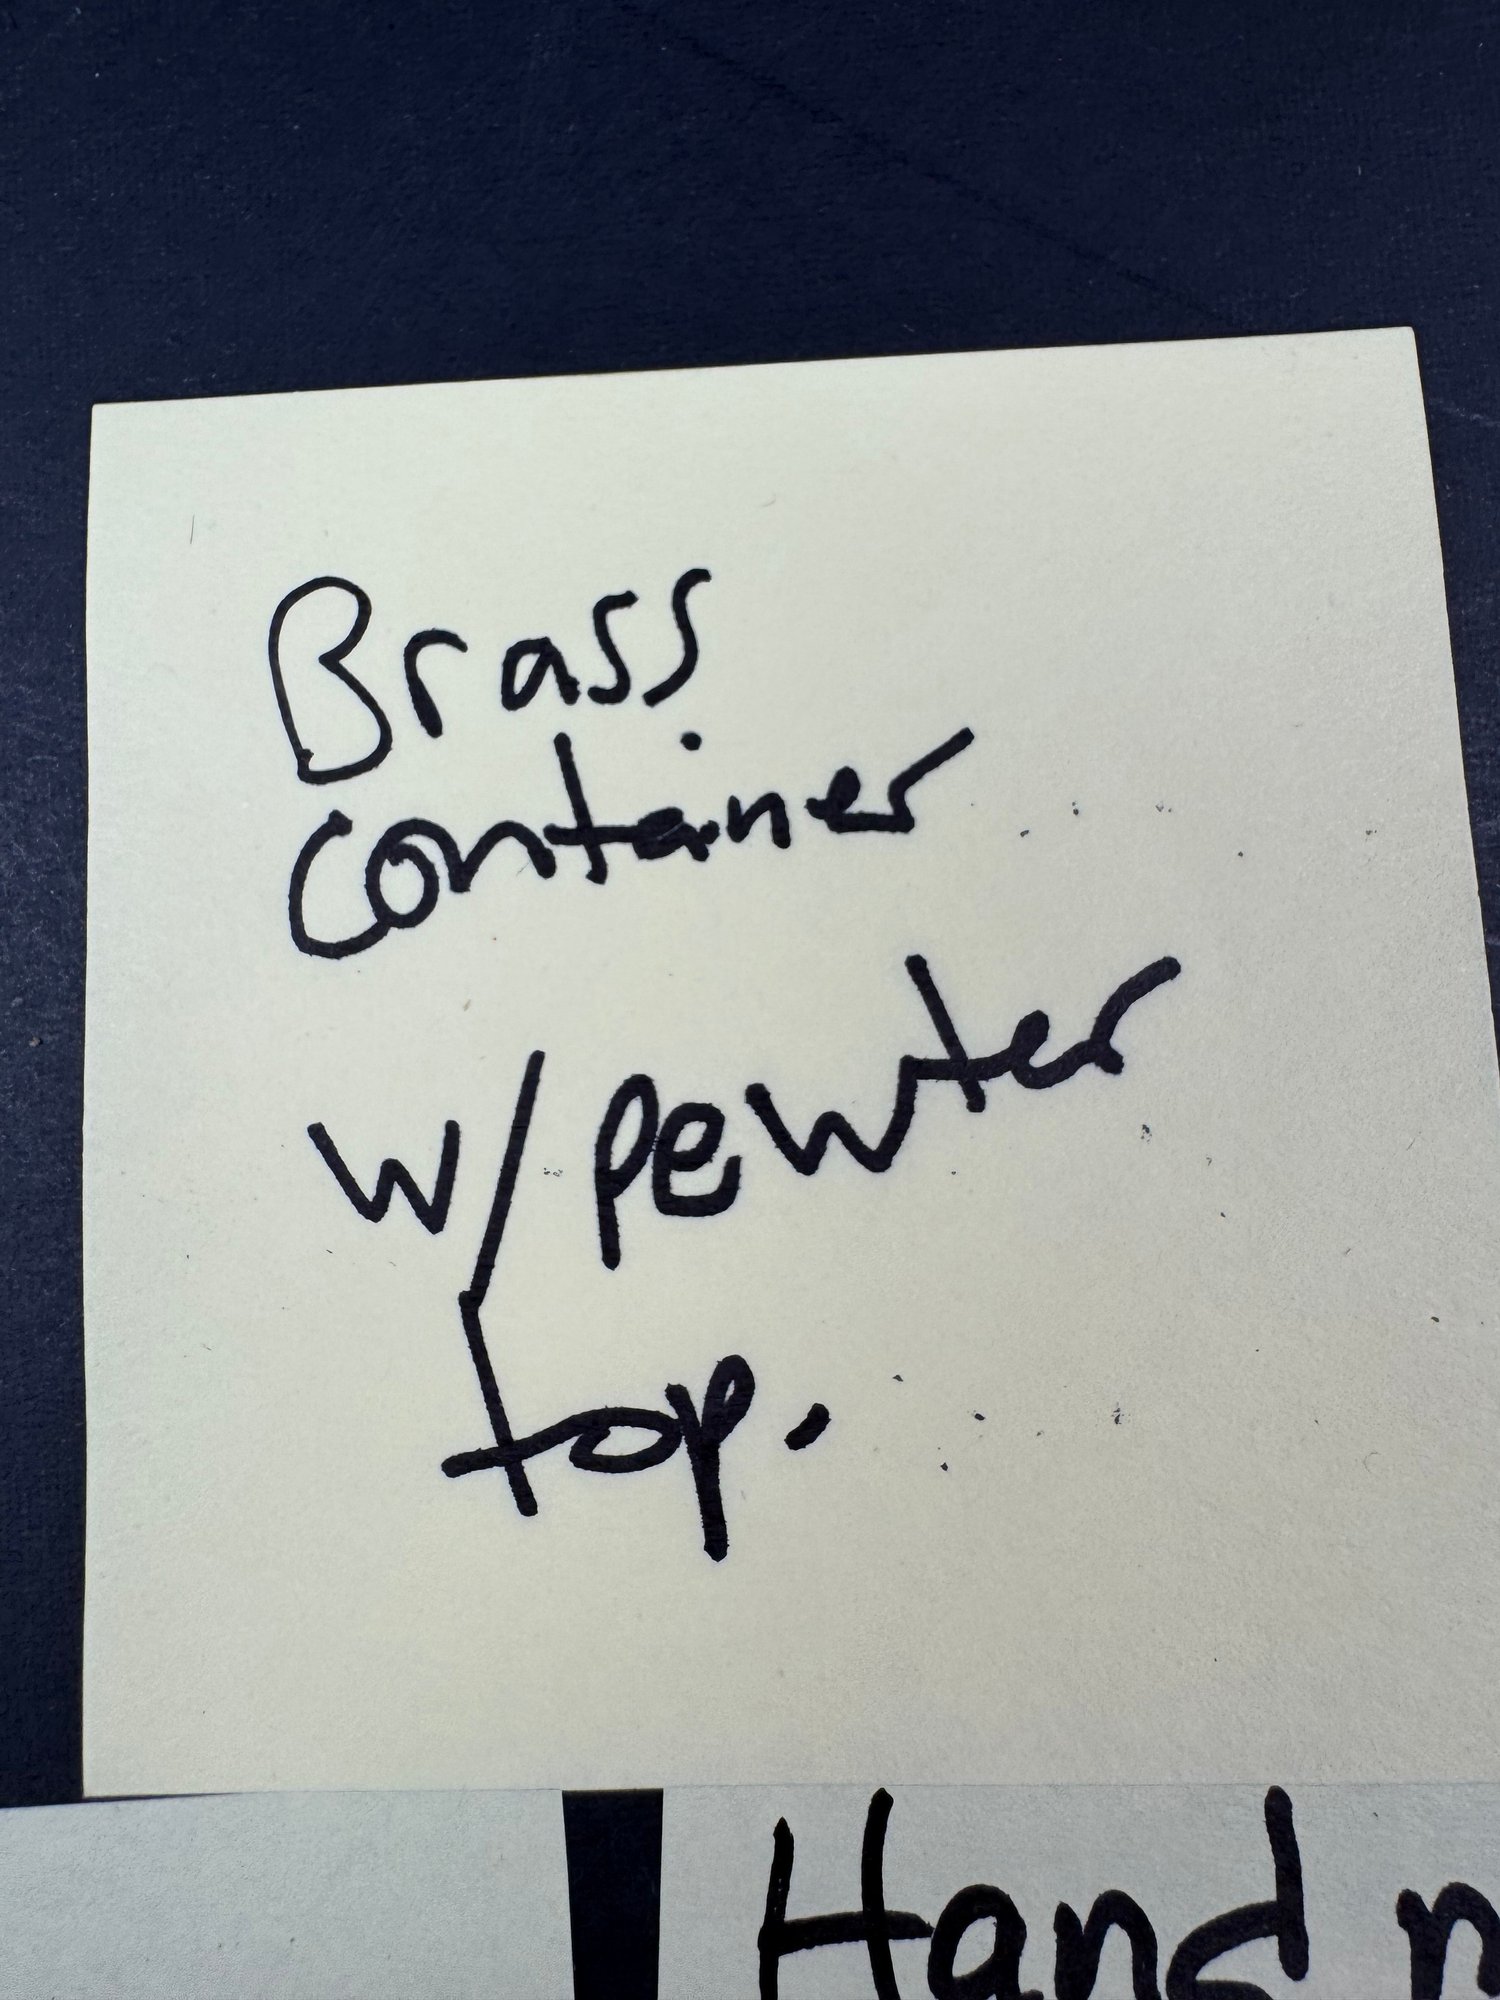 Brass
container
w/pewter
top.
Hand